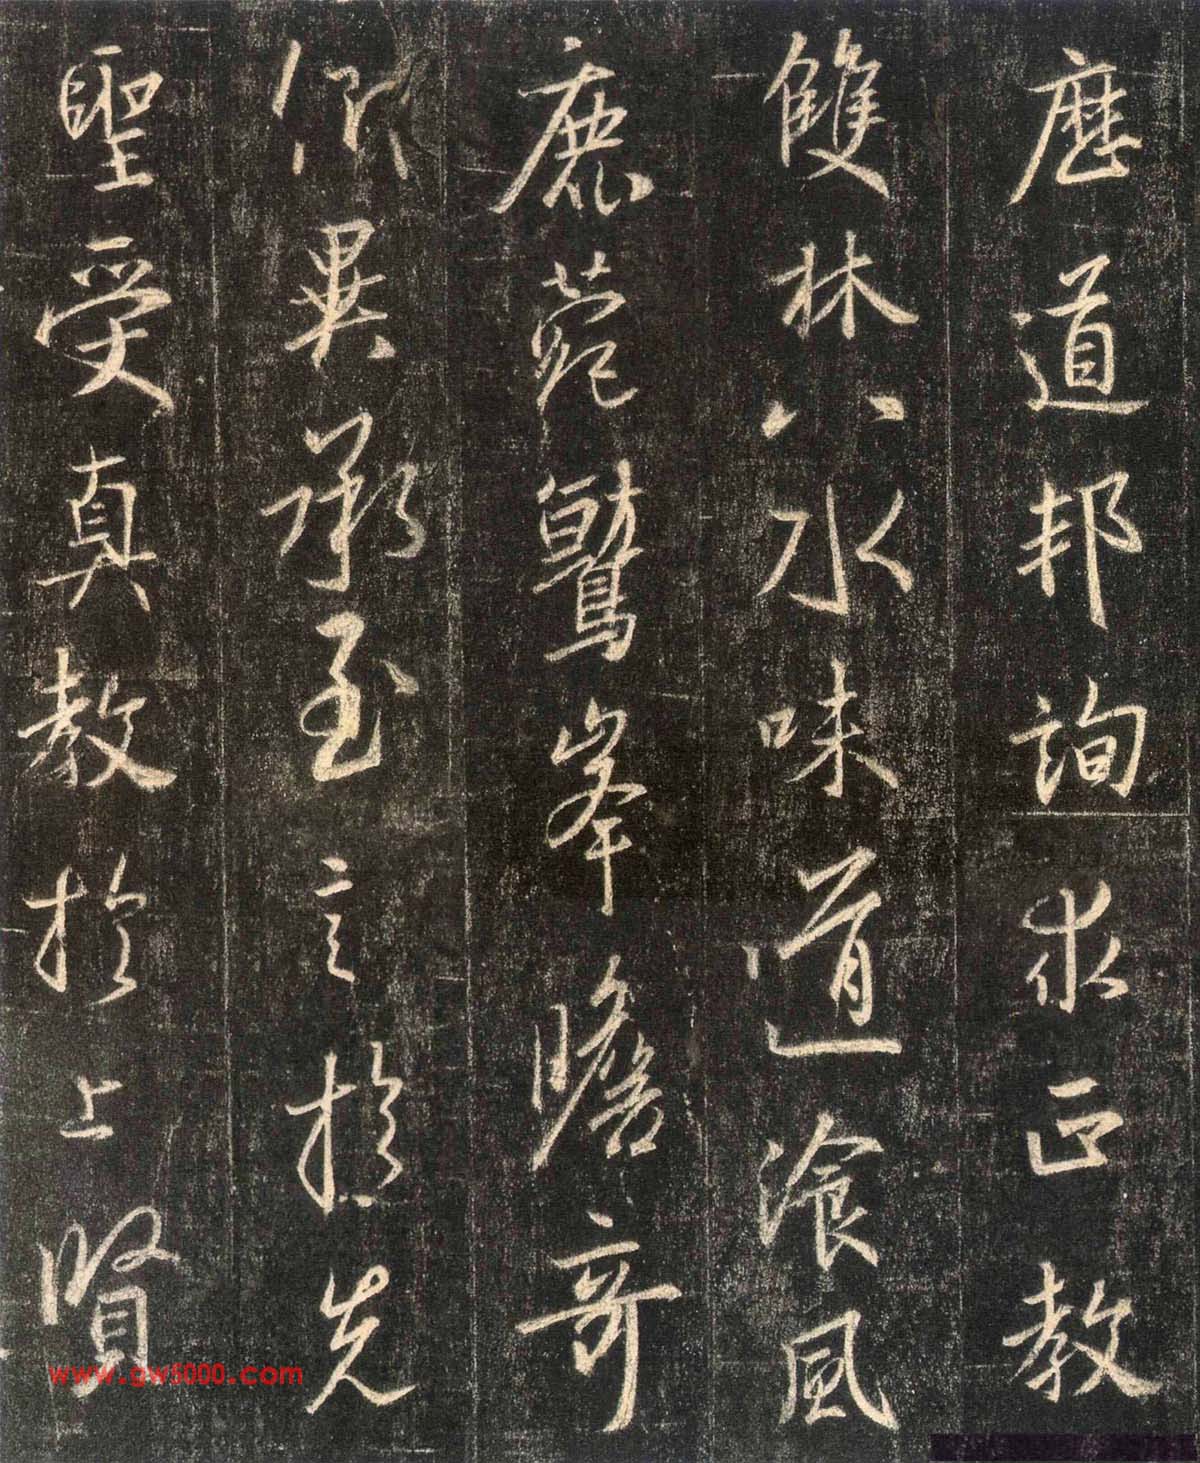 歷道邦詢求正教
雙林八水味道湌風
鹿菀鷲峯瞻奇
仰異承至言於先
聖受真教於上賢
www.gw5000.com